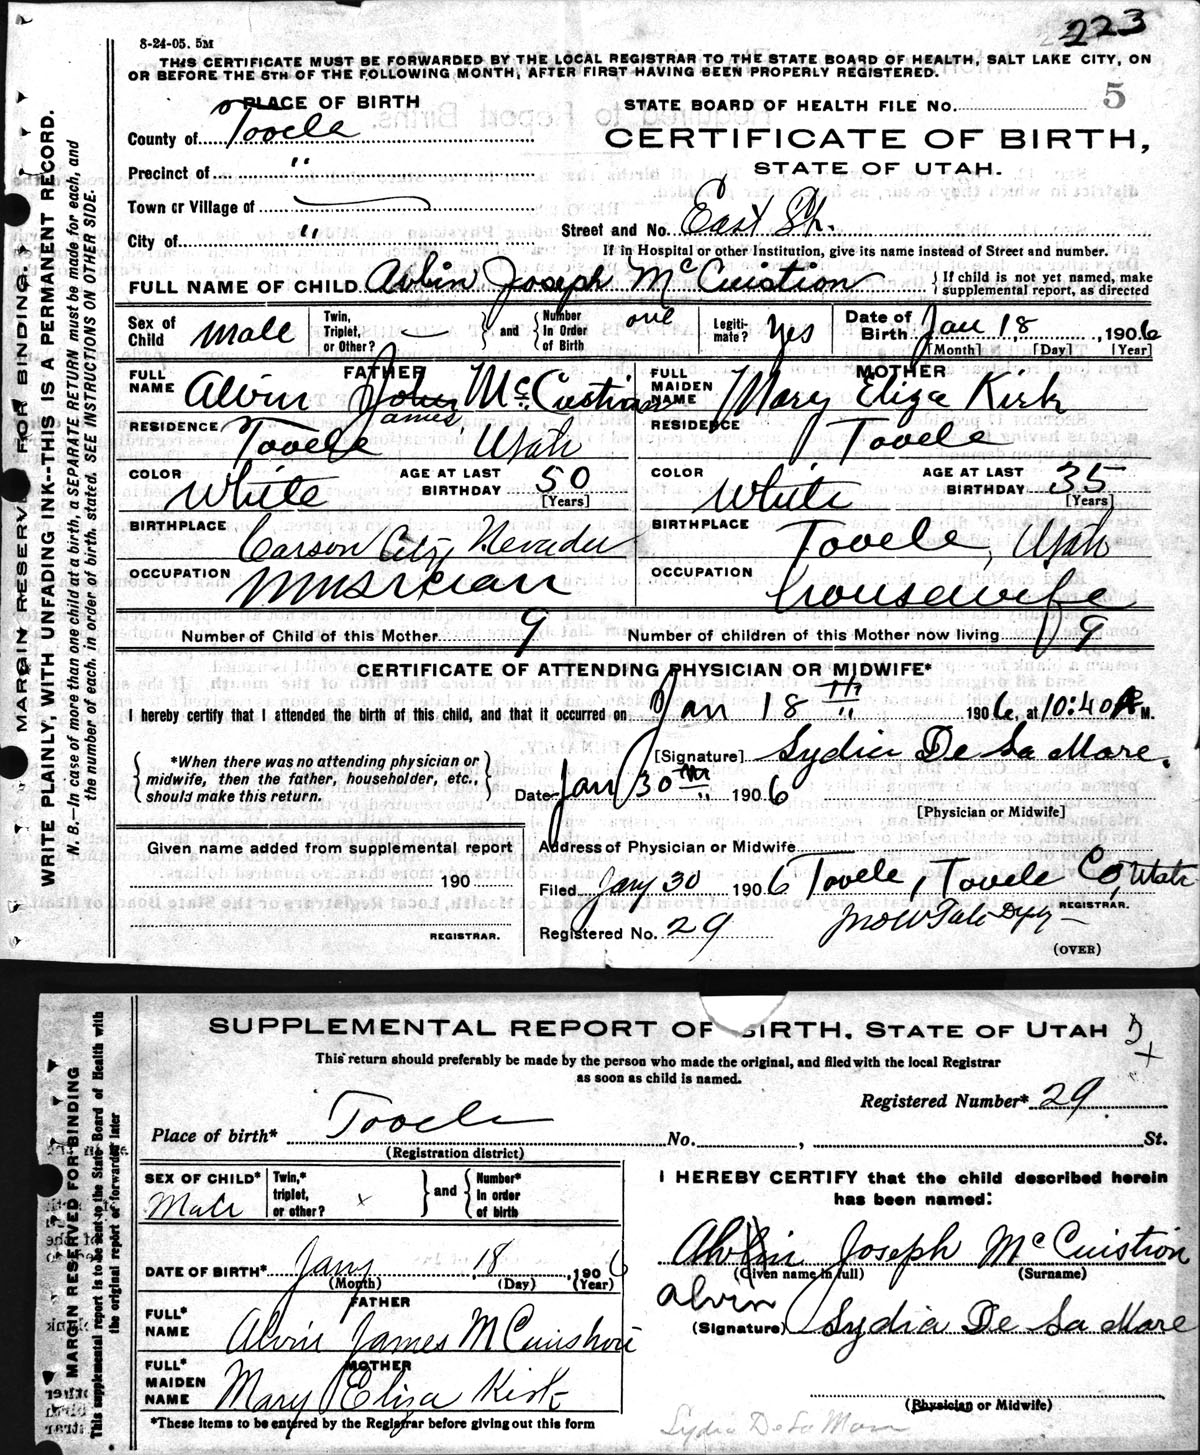 223
8-24-05. 5M
THIS CERTIFICATE MUST BE FORWARDED BY THE LOCAL REGISTRAR TO THE STATE BOARD OF HEALTH, SALT LAKE CITY, ON
OR BEFORE THE 5TH OF THE FOLLOWING MONTH, AFTER FIRST HAVING BEEN PROPERLY REGISTERED.
PLACE OF BIRTH
STATE BOARD OF HEALTH FILE No. 5
County of Tooele
CERTIFICATE OF BIRTH,
STATE OF UTAH.
Precinct of "
Town or Village of
City of "
Street and No. East St.
If in Hospital or other Institution, give its name instead of Street and number.
FULL NAME OF CHILD Alvin Joseph McCuistion { If child is not yet named, make supplemental report, as directed
Sex of Child Male
Twin, Triplet, or Other? — } and { Number in Order of Birth one
Legitimate? yes
Date of Birth Jan 18, 1906
[Month] [Day] [Year]
FATHER
FULL NAME Alvin John McCuistion
James
MOTHER
FULL MAIDEN NAME Mary Eliza Kirk
RESIDENCE Tooele Utah
RESIDENCE Tooele
COLOR White AGE AT LAST BIRTHDAY 50 [Years]
COLOR White AGE AT LAST BIRTHDAY 35 [Years]
BIRTHPLACE Carson City Nevada
BIRTHPLACE Tooele, Utah
OCCUPATION Musician
OCCUPATION housewife
Number of Child of this Mother 9 Number of children of this Mother now living 9
CERTIFICATE OF ATTENDING PHYSICIAN OR MIDWIFE*
I hereby certify that I attended the birth of this child, and that it occurred on Jan 18th 1906, at 10:40 A M.
{ *When there was no attending physician or midwife, then the father, householder, etc., should make this return. }
[Signature] Lydia De La Mare.
Date Jan 30th 1906
[Physician or Midwife]
Given name added from supplemental report
190
REGISTRAR.
Address of Physician or Midwife
Filed Jany 30 1906 Tooele, Tooele Co, Utah
REGISTRAR.
Registered No. 29
(OVER)
MARGIN RESERVED FOR BINDING.
WRITE PLAINLY, WITH UNFADING INK--THIS IS A PERMANENT RECORD.
N. B.—In case of more than one child at a birth, a SEPARATE RETURN must be made for each, and
the number of each, in order of birth, stated. SEE INSTRUCTIONS ON OTHER SIDE.
SUPPLEMENTAL REPORT OF BIRTH, STATE OF UTAH
This return should preferably be made by the person who made the original, and filed with the local Registrar
as soon as child is named.
Registered Number* 29
Place of birth* Tooele No. , St.
(Registration district)
SEX OF CHILD* Male
Twin,* triplet, or other? x } and { Number* in order of birth
I HEREBY CERTIFY that the child described herein
has been named:
Alvin Joseph McCuistion
(Given name in full) (Surname)
alvin
DATE OF BIRTH* Jany 18, 1906
(Month) (Day) (Year)
FATHER
FULL* NAME Alvin James McCuistion
(Signature) Lydia De La Mare
MOTHER
FULL* MAIDEN NAME Mary Eliza Kirk
(Physician or Midwife)
*These items to be entered by the Registrar before giving out this form
Lydia De La Mare
MARGIN RESERVED FOR BINDING
This supplemental report is to be sent to the State Board of Health with
the original report or forwarded later